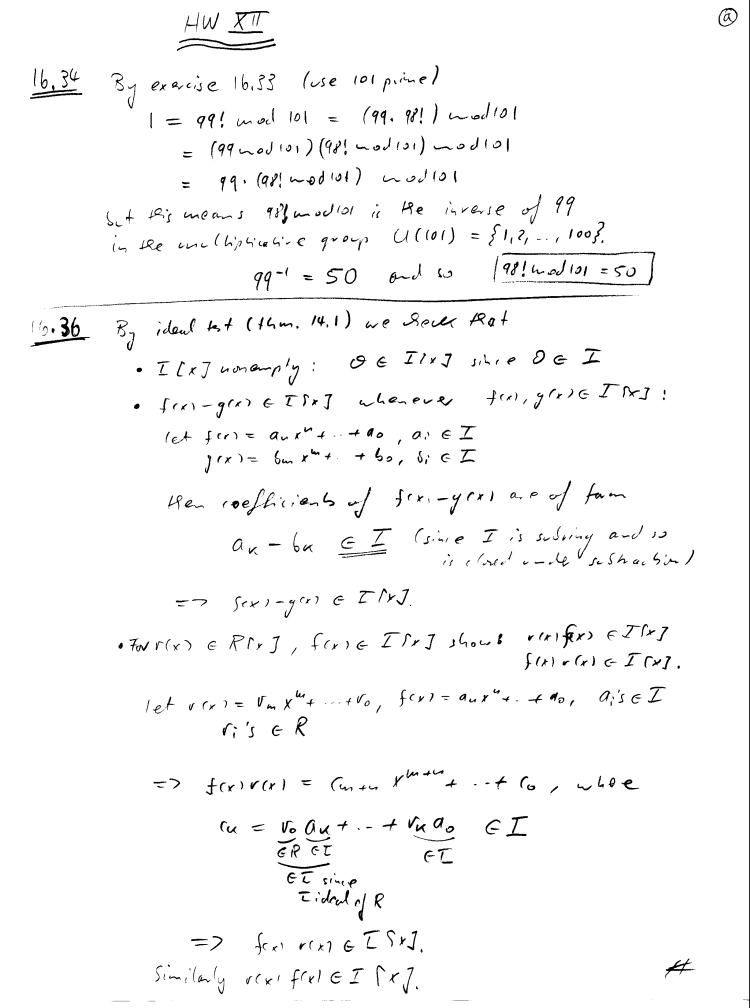 HW XII
ⓐ
16.34 By exercise 16.33 (use 101 prime)
1 = 99! mod 101 = (99 · 98!) mod 101
= (99 mod 101)(98! mod 101) mod 101
= 99 · (98! mod 101) mod 101
but this means 98! mod 101 is the inverse of 99
in the multiplicative group U(101) = {1,2, ..., 100}.
99⁻¹ = 50 and so 98! mod 101 = 50
16.36 By ideal test (thm. 14.1) we check that
• I[x] nonempty: 0 ∈ I[x] since 0 ∈ I
• f(x) - g(x) ∈ I[x] whenever f(x), g(x) ∈ I[x] :
let f(x) = aₙxⁿ + .. + a₀ , aᵢ ∈ I
g(x) = bₘxᵐ + .. + b₀, bᵢ ∈ I
then coefficients of f(x) - g(x) are of form
aₖ - bₖ ∈ I (since I is subring and so
is closed under subtraction)
=> f(x) - g(x) ∈ I[x].
• For r(x) ∈ R[x], f(x) ∈ I[x] show r(x) f(x) ∈ I[x]
f(x) r(x) ∈ I[x].
let r(x) = rₘxᵐ + ... + r₀, f(x) = aₙxⁿ + .. + a₀, aᵢ's ∈ I
rᵢ's ∈ R
=> f(x) r(x) = cₘ₊ₙ xᵐ⁺ⁿ + .. + c₀ , where
cₖ = r₀ aₖ + .. + rₖ a₀ ∈ I
∈R ∈I ∈I
∈ I since
I ideal of R
=> f(x) r(x) ∈ I[x].
Similarly r(x) f(x) ∈ I[x]. #